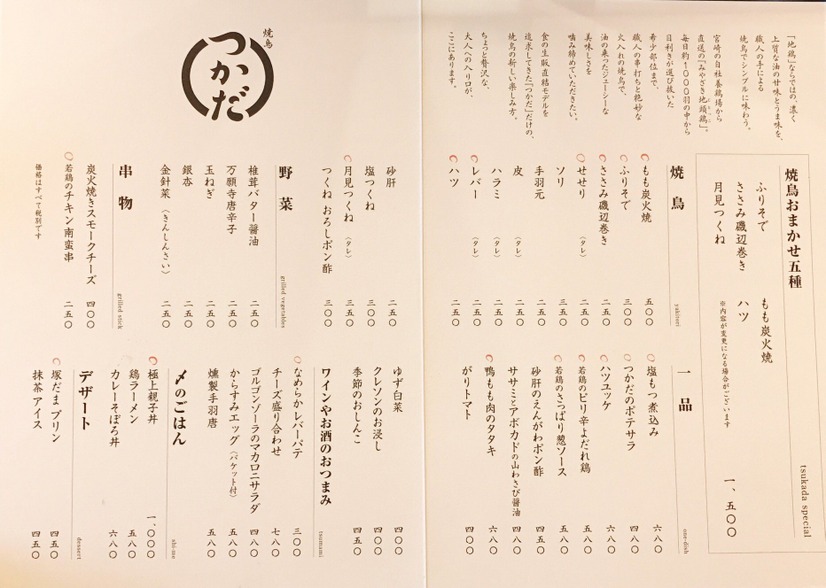 「地鶏」ならではの、濃く
上質な油の甘味とうま味を、
職人の手による
焼鳥でシンプルに味わう。
宮崎の自社養鶏場から
直送の「みやざき地頭鶏」。
毎日約1000羽の中から
目利きが選び抜いた
希少部位まで、
職人の串打ちと絶妙な
火入れの焼鳥で、
油の乗ったジューシーな
美味しさを
噛み締めていただきたい。
食の生販直結モデルを
追求してきた「つかだ」だけの、
焼鳥の新しい楽しみ方。
ちょっと贅沢な、
大人への入り口が、
ここにあります。
焼鳥おまかせ五種
ふりそで もも炭火焼
ささみ磯辺巻き ハツ
月見つくね
※内容が変更になる場合がございます
一、五〇〇
tsukada special
焼鳥
yakitori
もも炭火焼 五〇〇
ふりそで 二五〇
ささみ磯辺巻き 三〇〇
せせり(タレ) 二五〇
ソリ 三五〇
手羽元 二五〇
皮(タレ) 二五〇
ハラミ(タレ) 二五〇
レバー(タレ) 二五〇
ハツ 二五〇
一品
one-dish
塩もつ煮込み 六八〇
つかだのポテサラ 四八〇
ハツユッケ 六八〇
若鶏のピリ辛よだれ鶏 五八〇
若鶏のさっぱり葱ソース 五八〇
砂肝のえんがわポン酢 四五〇
ササミとアボカドの山わさび醤油 四八〇
鴨もも肉のタタキ 六八〇
がりトマト 四〇〇
焼鳥
つかだ
砂肝 二五〇
塩つくね 三〇〇
月見つくね(タレ) 三五〇
つくね おろしポン酢 三〇〇
野菜
grilled vegetables
椎茸バター醤油 二五〇
万願寺唐辛子 二五〇
玉ねぎ 二五〇
銀杏 二五〇
金針菜(きんしんさい) 二五〇
串物
grilled stick
炭火焼きスモークチーズ 四〇〇
若鶏のチキン南蛮串 二五〇
価格はすべて税別です
ゆず白菜 四〇〇
クレソンのお浸し 四〇〇
季節のおしんこ 四五〇
ワインやお酒のおつまみ
tsumami
なめらかレバーパテ 三〇〇
チーズ盛り合わせ 七八〇
ゴルゴンゾーラのマカロニサラダ 四八〇
からすみエッグ(バケット付) 五八〇
燻製手羽唐 五八〇
〆のごはん
shi-me
極上親子丼 一、〇〇〇
鶏ラーメン 五八〇
カレーそぼろ丼 六八〇
デザート
dessert
塚だま プリン 四五〇
抹茶アイス 四五〇